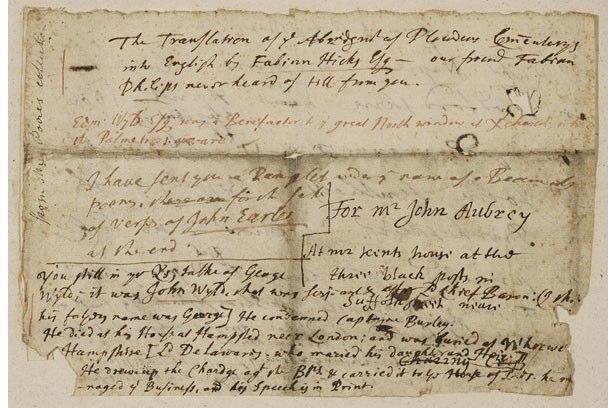 The Translation of ye Abridgmt of Plowdens Comentarys
into English by Fabian Hicks Esq — our friend Fabian
Philips never heard of till from you.
Edm: Wyld Esq was a Benefactor to ye great North window at
the Palme tree &
I have sent you a Pamphlet under ye name of
poems, for the sake
of verses of John Earles
at the end
For Mr John Aubrey
At Mr Kents house at the
three black posts in
Suffolk street neare
Charing
you still in yr talke of George
Wyld; it was John Wyld that was Serjeant & after Ld Chief Baron: (
his fathers name was George] He condemned Captaine Burley.
He died at his House at Hampsted near London; and was buried at Wherwel
Hampshire [Ld Delawares, who maried his daughter and Heir.]
He drew up the Charge agt the BPs & carried it to ye House of Lords. he
naged ye Business, and his Speech is in Print.